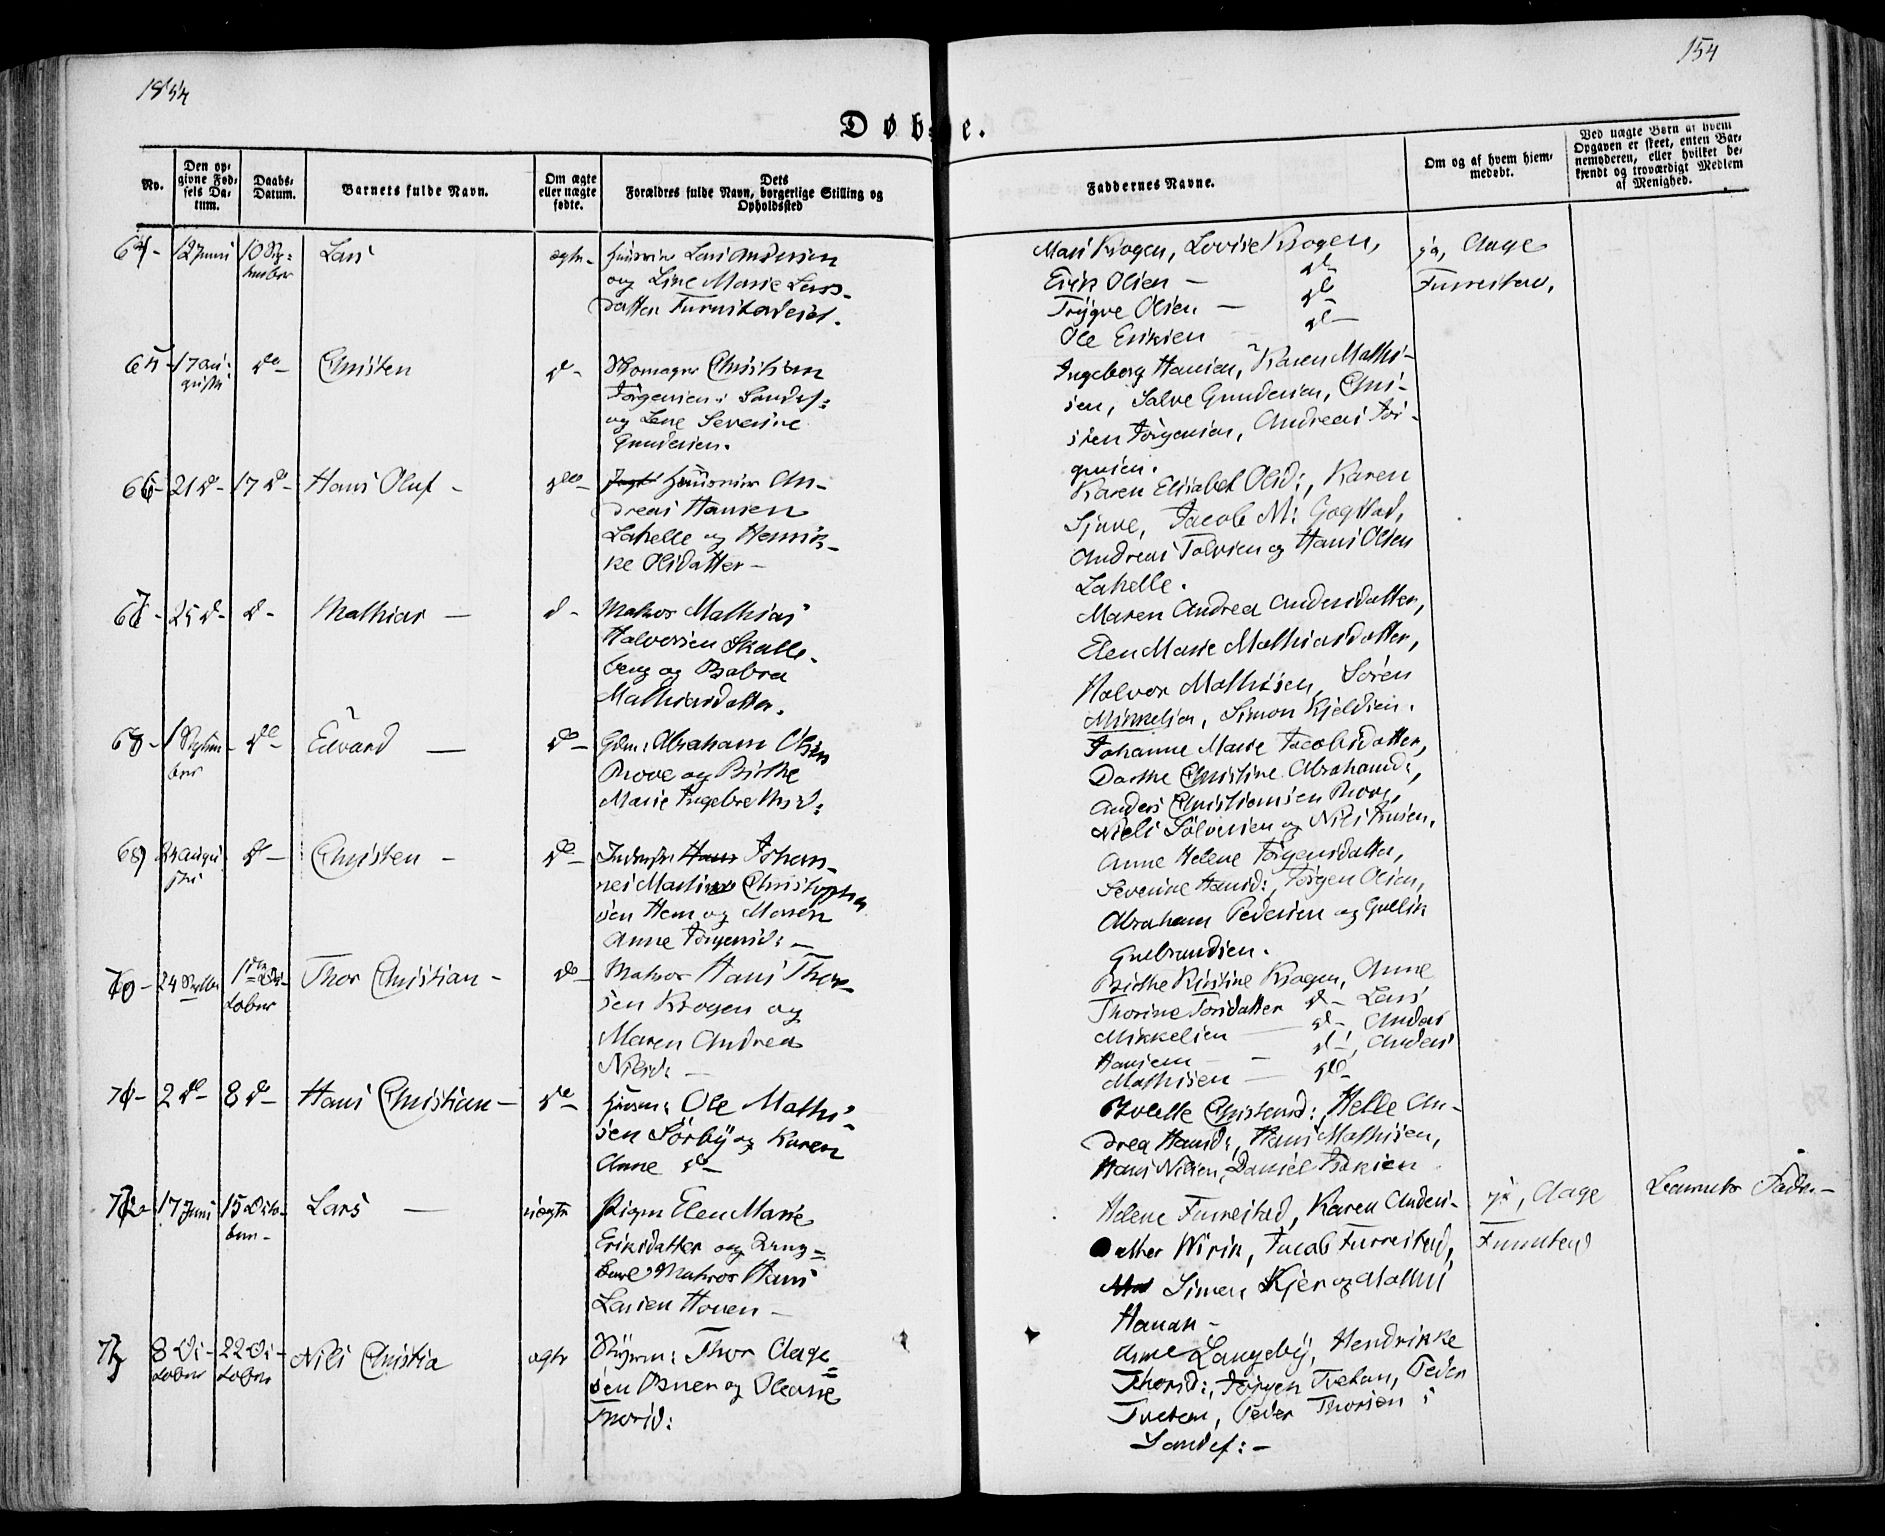 1854
154
Døbte.
No.
Den op-
givne Fød-
sels Da-
tum.
Daabs-
Datum.
Barnets fulde Navn.
Om ægte
eller uægte
fødte.
Dets
Forældres fulde Navn, borgerlige Stilling og
Opholdssted
Faddernes Navne.
Om og af hvem hjem-
medøbt.
Ved uægte Børn af hvem
Opgaven er skeet, enten Bar-
nemoderen, eller hvilket be-
kjendt og troværdigt Medlem
af Menighed.
64- 12 Juni 10 Sep-
tember
Lars
ægte-
Huusm Lars Andersen
og Line Marie Lars-
datter Furustadeiet.
Mari Krogen, Lovise Krogen,
Erik Olsen - do
Trygve Olsen - do
Ole Eriksen - do
ja, Aage
Furrestad,
65- 17 Au-
gusti
do-
Christen
d-
Skomager Christian
Jørgensen i Sandef:
og Lene Severine
Gundersen.
Ingeborg Hansen, Karen Mathi-
sen, Salve Gundersen, Chri-
sten Jørgensen, Andreas Jør-
gensen.
66- 21 d- 17 d-
Hans Oluf -
do-
Huusm An-
dreas Hansen
Lahelle og Henrik-
ke Olsdatter -
Karen Elisabet Olsd:, Karen
Sjuve, Jacob M: Gogstad,
Andreas Tolvsen og Hans Olsen
Lahelle.
67- 25 d- d-
Mathias -
d-
Matros Mathias
Halvorsen Skalle-
berg og Babra
Mathiasdatter.
Maren Andrea Andersdatter,
Elen Marie Mathiasdatter,
Halvor Mathisen, Søren
Mikkelsen, Simon Kjeldsen.
68- 1 Septem-
ber
do-
Edvard -
do-
Gdm: Abraham Olsen
Rove og Birthe
Marie Ingebrethsd:
Johanne Marie Jacobsdatter,
Dorthe Christine Abrahamsd:,
Anders Christiansen Rove,
Niels Sølvesen og Nils Iversen.
69 24 Augu-
sti
d-
Christen -
do-
Inderste Hans Johan-
nes Martin Christophe
sen Hem og Maren
Anne Jørgensd: -
Anne Helene Jørgensdatter,
Severine Hansd:, Jørgen Olsen,
Abraham Pedersen og Gullik
Gulbrandsen.
70- 24 Septbr 1ste Ok-
tober
Thor Christian -
do-
Matros Hans Thor-
sen Krogen og
Maren Andrea
Nilsd: -
Birthe Kirstine Krogen, Anne
Thorine Torsdatter d- Lars
Mikkelsen - d-, Anders
Hansen - - d-, Anders
Mathisen - do
71- 2 d- 8 d-
Hans Christian -
do-
Huusm: Ole Mathi-
sen Sørby og Karen
Anne d-
Bolette Christensd:, Helle An-
drea Hansd:, Hans Mathisen,
Hans Nilsen, Daniel Isaksen
72- 17 Juni 15 Octo-
ber-
Lars -
uægte
Pigen Elen Marie
Eriksdatter og Ung-
karl Matros Hans
Larsen Hoven -
Helene Furrestad, Karen Anders-
datter Wirik, Jacob Furrestad,
Simen Kjer og Mathis
Hanan -
ja, Aage
Furustad
Barnets Fader -
73 8 Oc-
tober
22 Oc-
tober
Nils Christia
ægte
Styrm: Thor Aage-
sen Osner og Oleane
Thorsd:
Anne Langeby, Hendrikke
Thorsd:, Jørgen Tvetan, Peder
Tvetan, Peder Thorsen i
Sandef: -